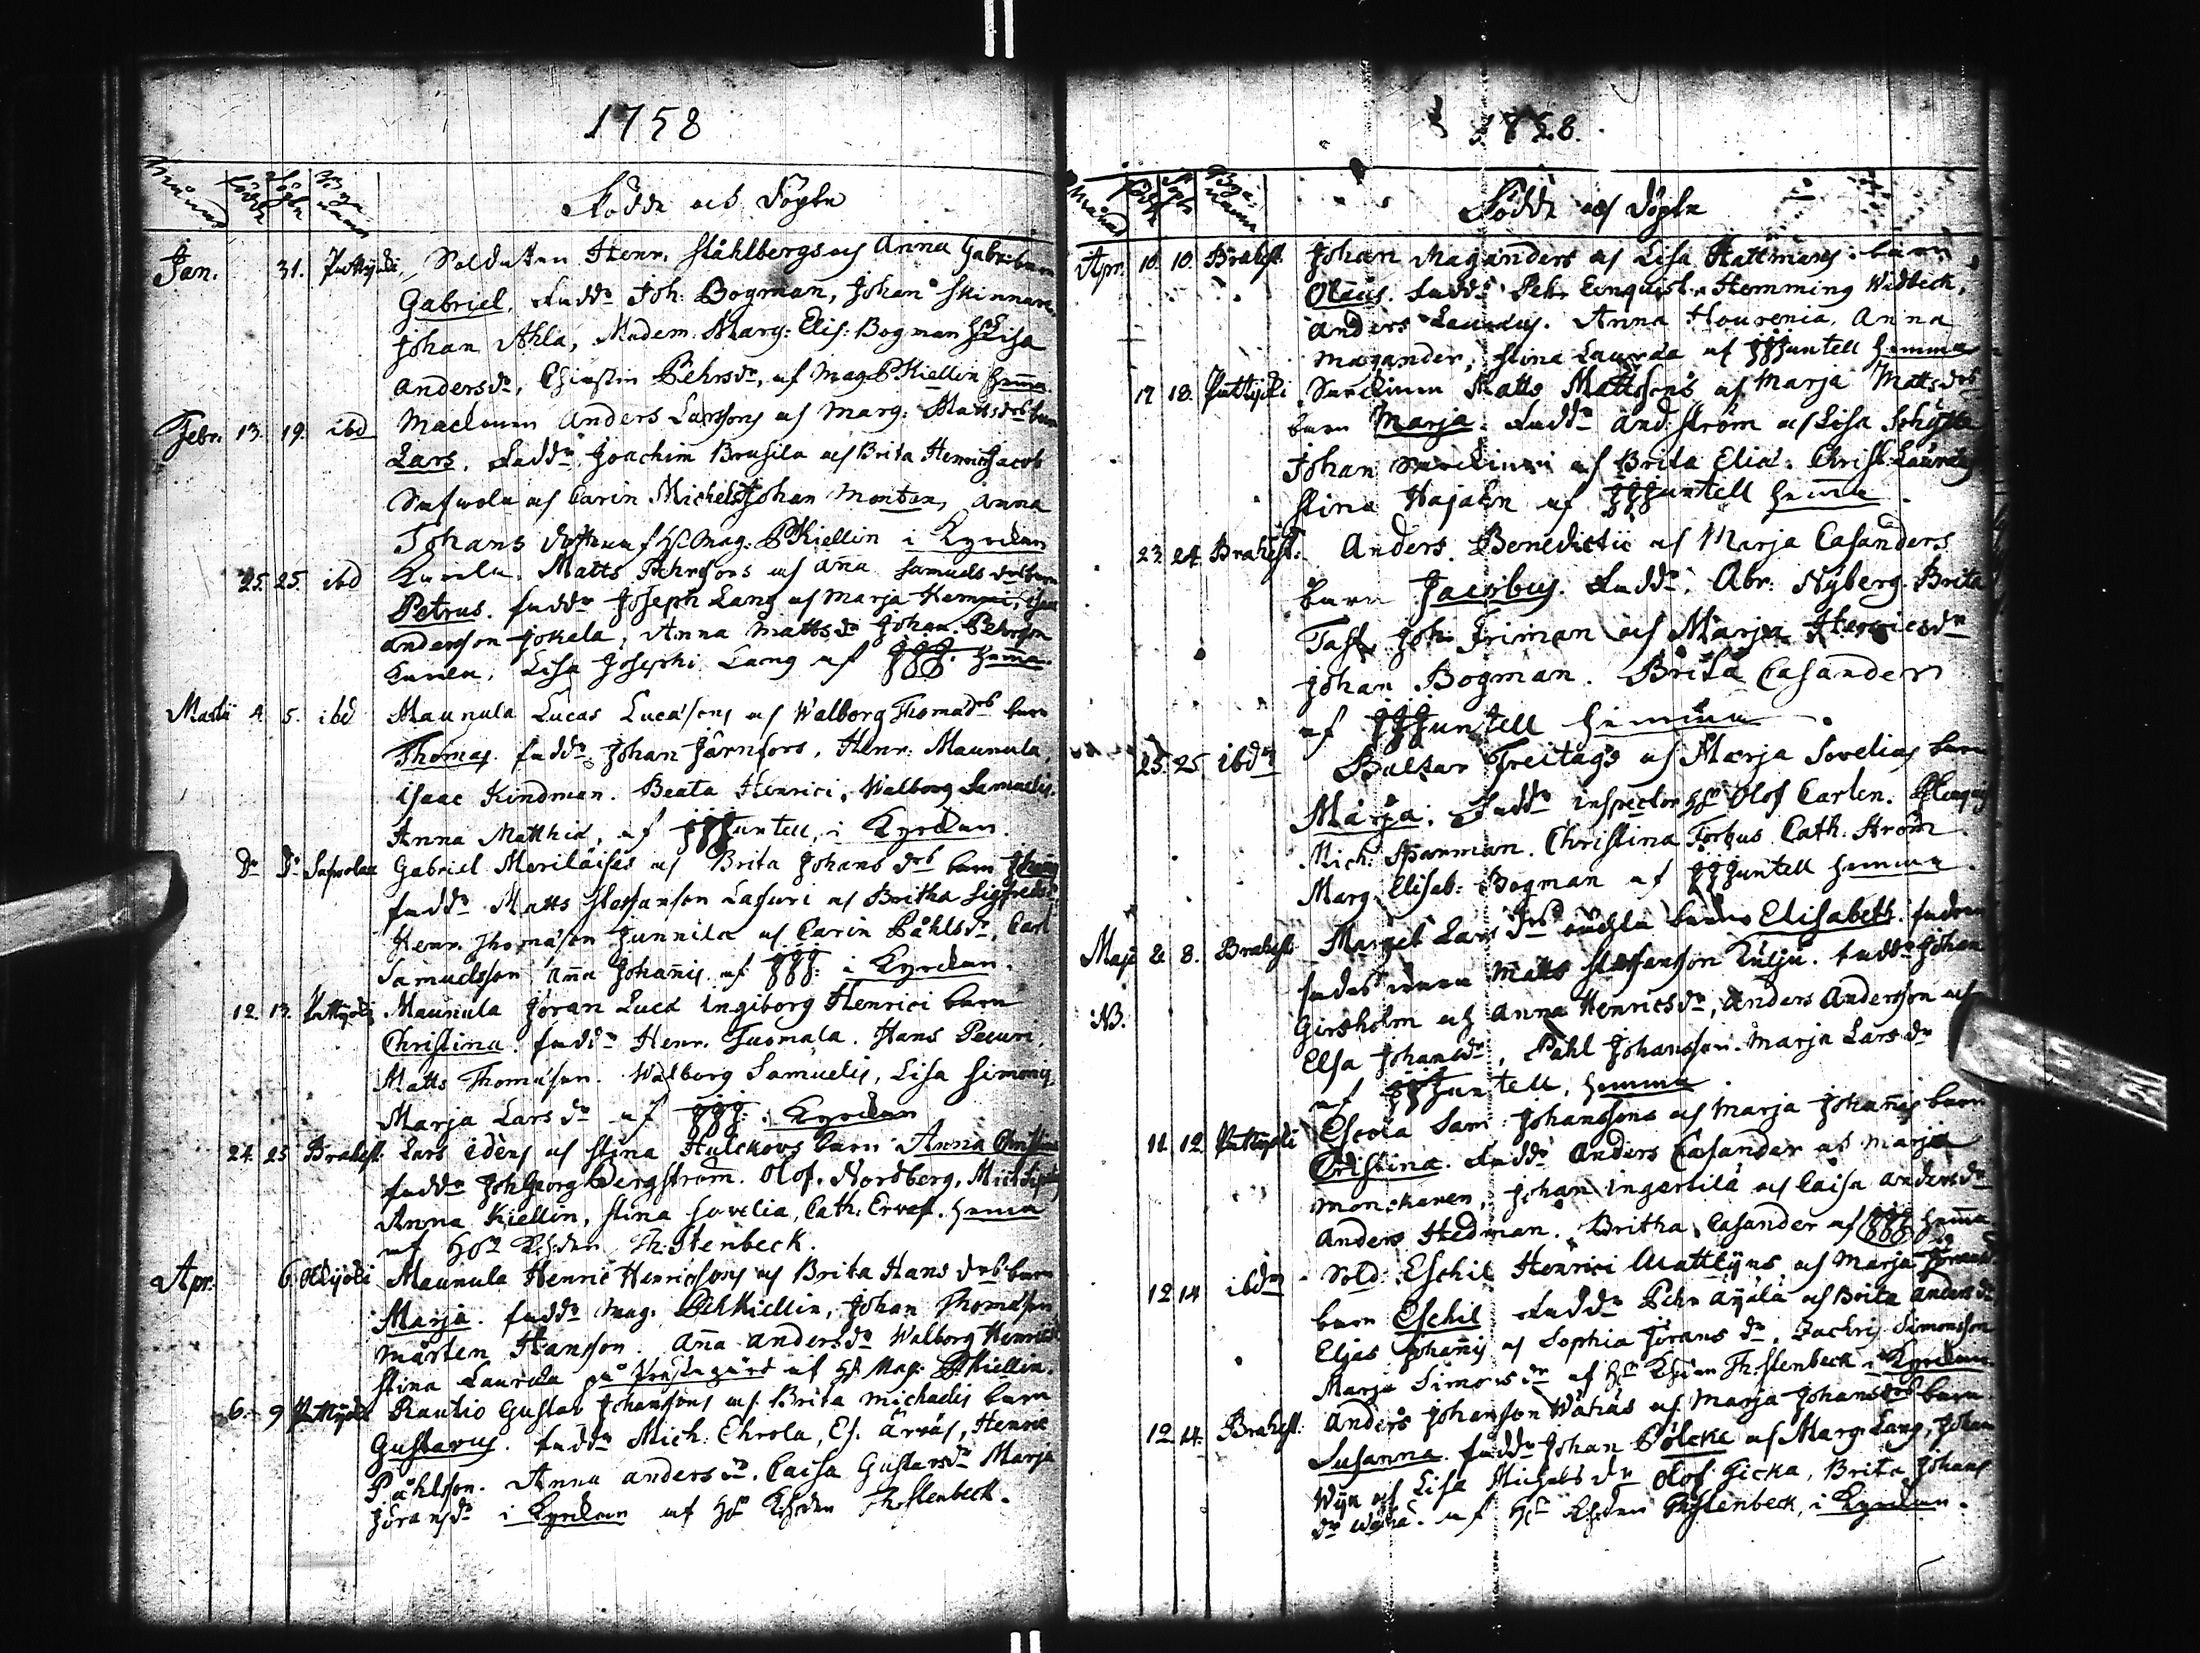 1758
Månad Födde Döpte Byanamn
Födde och Döpte
Jan. 31. Pattijoki Soldaten Henr. Ståhlbergs och Anna Gabr: barn
Gabriel. Fadd: Joh: Bogman, Johan Skinnare,
Johan Ahla, Madem. Marg: Elis: Bogman Lisa
Andersdr, Christin Pehrsdr, af Mag. P Kiellin hem̅a.
Febr. 13. 19. ibd Anders Larssons och Marg: Mattsdrs barn
Lars. Fadd: Joachim Brusila och Brita Henrici Jacob
och Carin Michelsdr Johan Monten, Anna
Johans af H Mag: P Kiellin i Kyrckan
25. 25. ibd Matts Pehrsons och An̅a Samuels drs barn
Petrus. fadd: Joseph Lang och Marja Kemppi, Isaac
Andersson Jokela, Anna Mattsdr Johan Pehrson
Lisa Josephi Lang af JJJ. hem̅a.
Martii 4. 5. ibd Maunula Lucas Lucæsons och Walborg Thomædrs barn
Thomas. fadd: Johan Järnfors, Henr: Maunula,
Isaac Kindman. Beata Henrici, Walborg Samuelis,
Anna Matthiæ, af JJJuntell, i Kyrckan.
Dn Dn Gabriel Meriläises och Brita Johans drs barn
fadd: Matts Staffanson Lasuri och Britha Sigfredsdr
Henr. Thomæson Junnila och Carin Påhlsdr, Carl
Samuelsson An̅a Johan̅is. af JJJ: i Kyrckan.
12. 13. Pattijoki Maunula Jöran Lucæ Ingiborg Henrici barn
Christina. fadd: Henr. Tuomala. Hans Pecuri.
Matts Thomæson. Walborg Samuelis, Lisa Simonis,
Marja Larsdr af JJJ. i Kyrckan
24. 25 Brahest. Lars Idens och Stina Hulckovs barn Anna Christina
fadd: Joh Georg Bergström. Olof. Nordberg,
Anna Kiellin, Stina Sovelia, Cath. Ervast. hemma
af Hr Th: Stenbeck.
Apr. 6. Olkijoki Maunula Henric Henricsons och Brita Hans drs barn
Marja. fadd: Mag. Kiellin, Johan Thomæson
Mårten Hansson. An̅a Andersdr Walborg Henrici
Stina Laurela på Prästegård af H Mag: Kiellin.
6. 9 Pattijoki Rautio Gustav Johanssons och Brita Michaelis barn
Gustavus. fadd: Mich: Ehrola, Henric
Påhlsson. Anna Andersdr. Caisa Gustavsdr Marja
Jöransdr i Kyrckan af Hr Th: Stenbeck.
1758.
Månad Födde Döpte Byanamn
Födde och Döpte
Apr. 10. 10. Brahest. Johan Maganders och Lisa barn
Olaus. Fadd: Petr Enquist Hemming Widbeck,
Anders Anna Hourenia, Anna
Magander, Stina Laurela af JJJuntell hemma
17 18. Pattijoki Matts Mattssons och Marja Mattsdrs
barn Marja. Fadd: And: Ström och Lisa Schytte
Johan och Brita Eliæ. Christ: Laurelus
Stina Hajalin af JJJuntell hem̅a.
23. 24. Brahest. Anders Benedictii och Marja Casanders
barn Jacobus. Fadd: Abr. Nyberg. Brita
Tast Joh: Friman och Marja Henricsdr
Johan Bogman. Brita Casander
af JJJuntell hemma.
25. 25 ibdm Baltzar Freitags och Marja Sovelias barn
Marja. Fadd: Inspector Hr Olof Carlen.
Mich: Sparman. Christina Forbus Cath. Ström
Marg: Elisab: Bogman af JJJuntell hemma.
Maji 8. Brahest Marget Lars drs oächta barn Elisabeth. fadren
NB. Matts Staffansson Kulju. fadd: Johan
Girsholm och Anna Henricsdr, Anders Andersson och
Elsa Johansdr, Påhl Johansson. Marja Larsdr
af JJJuntell, hemma.
11. 12. Pattijoki Sam: Johanssons och Marja Johan̅is barn
Cristina. Fadd: Anders Casander och Marja
Johan Ingertilä och Caisa Andersdr
Anders Hedman. Britha Casander af JJJ hem̅a
12 14 ibdm Sold: Eschil Henrici Mattlijns och Marja
barn Eschil Fadd: Pehr Äyälä och Brita Andersdr
Elias Johan̅is och Sophia Jörans dr, Zachris Simonsson
Marja Simonsdr af Hr Th: Stenbeck i Kyrckan
12 14. Brahest. Anders Johanson och Marja Johansdrs barn
Susanna. fadd: Johan Pölcke och Marg: Lang, Johan
Lisa Michelsdr Olof Jicka, Brita Johans
dr af Hr Th Stenbeck, i Kyrckan.